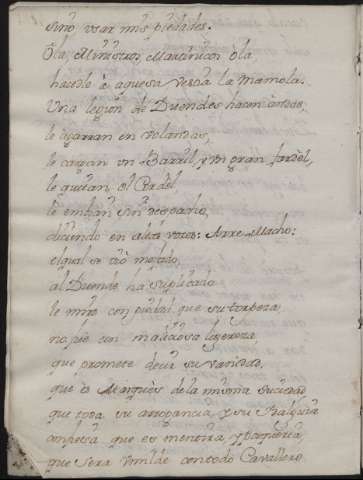 sino usar mis piedades.
Ola, Ministros, Martinicos ola,
hacedle à aquesa vestia la mamola.
Una legion de Duendes hacen andas,
le agarran en volandas,
le cargan un Barril, y un gran fardel,
le quitan el Cordel,
le embian sin despacho,
diciendo en altas voces: Arre Macho:
el qual se vió metido
al Duende ha suplicado
le mire con piedad que su torpeza
no fue con maliciosa ligereza
que promete decir su vanidad,
que es Marqués de la misma suciedad
que toda su arrogancia, y su
confiesa que es mentira, y
que sera humilde con todo Cavallero